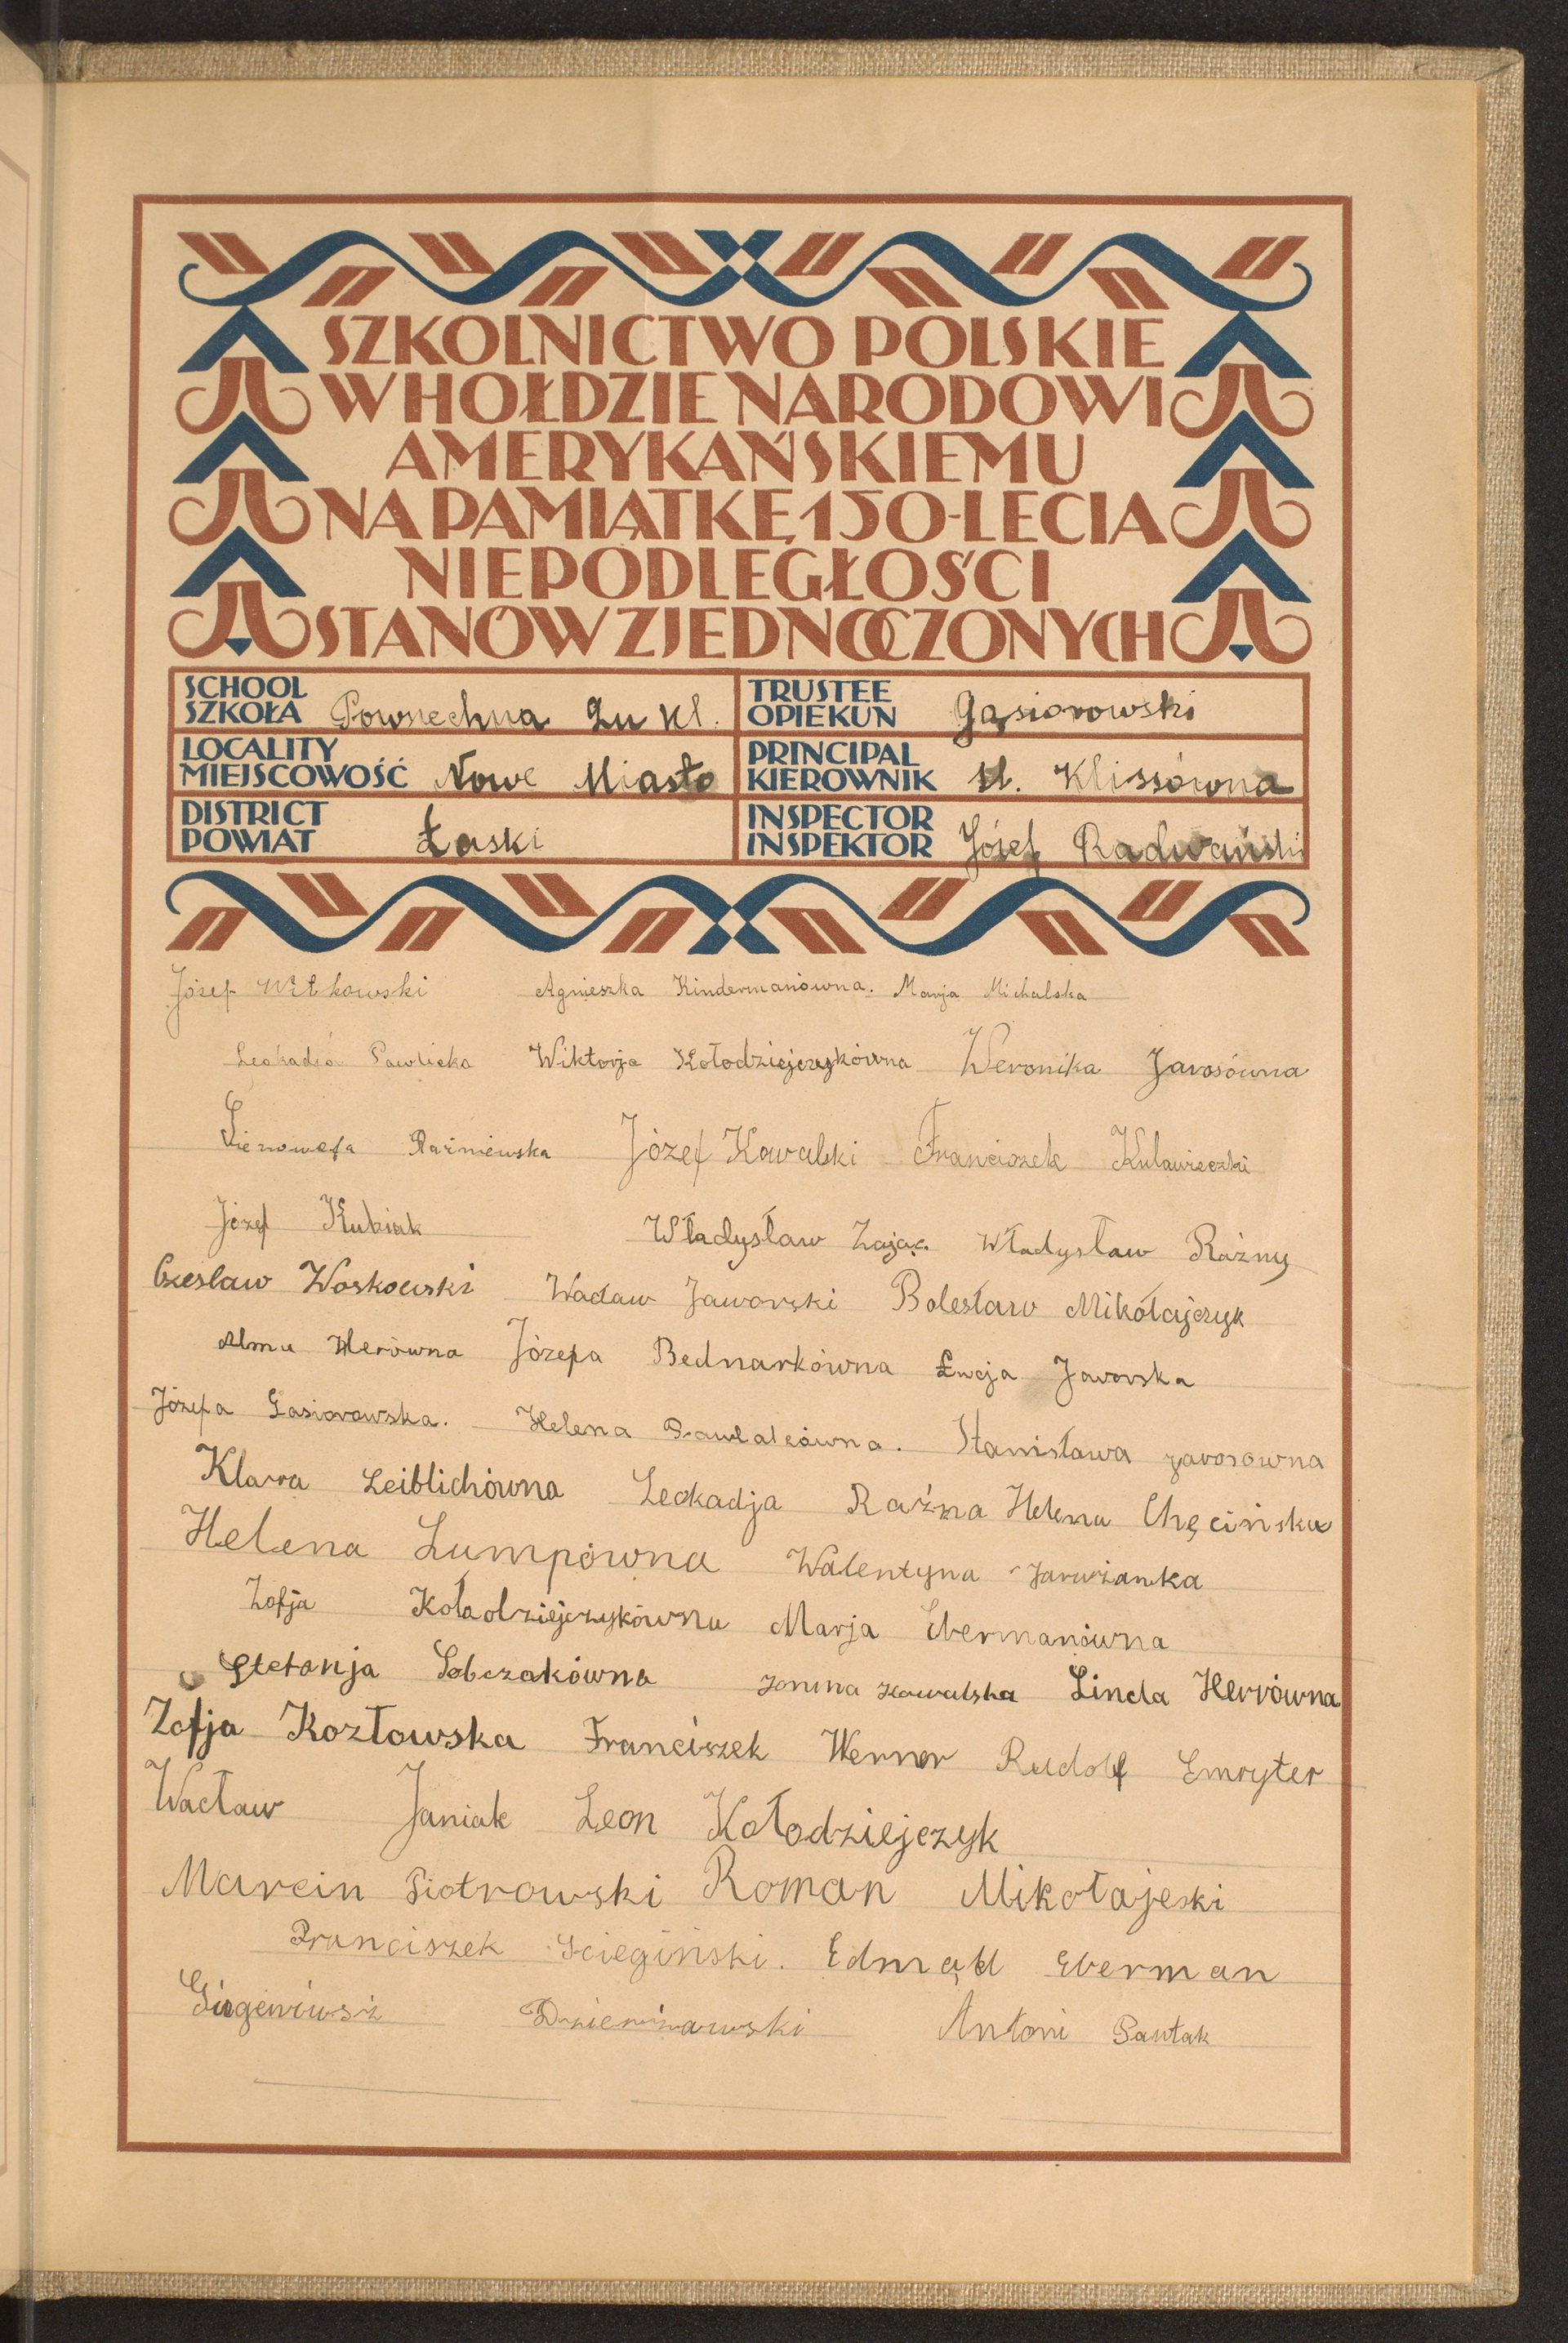 SZKOLNICTWO POLSKIE
W HOŁDZIE NARODOWI
AMERYKAŃSKIEMU
NA PAMIĄTKĘ 150-LECIA
NIEPODLEGŁOŚCI
STANÓW ZJEDNOCZONYCH
SCHOOL SZKOŁA Powszechna 2u kl.
TRUSTEE OPIEKUN Gąsiorowski
LOCALITY MIEJSCOWOŚĆ Nowe Miasto
PRINCIPAL KIEROWNIK St. Klissówna
DISTRICT POWIAT Łaski
INSPECTOR INSPEKTOR Józef Radwański
Józef Witkowski Agnieszka Kindermanówna. Marja Michalska
Leokadia Pawlicka Wiktorja Kołodziejczykówna Weronika Jarosówna
Gienowefa Raźniewska Józef Kowalski Franciszek Kulawieczki
Józef Kubiak Władysław Zając Władysław Raźny
Czesław Woskowski Wacław Jaworski Bolesław Mikołajczyk
Alma Herówna Józefa Bednarkówna Łucja Jaworska
Józefa Gasiorowska. Helena Stanisława Jarosówna
Klara Leiblichówna Leokadja Raźna Helena Chęcińska
Helena Lumpówna Walentyna
Zofja Kołodziejczykówna Marja Ebermanówna
Stefanja Sobczakówna Janina Kowalska Linda Herrówna
Zofja Kozłowska Franciszek Werner Rudolf Emryter
Wacław Janiak Leon Kołodziejczyk
Marcin Piotrowski Roman Mikołajeski
Franciszek Ściegiński. Edmąd Eberman
Antoni Pawlak